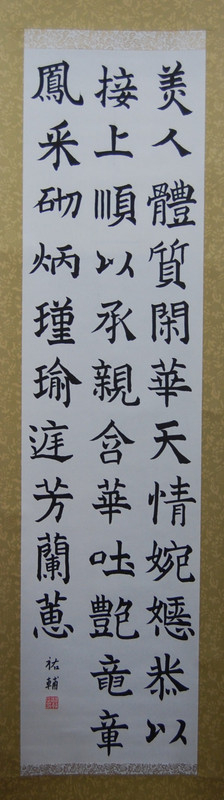 美人體質閑華天情婉嫕恭以
接上順以承親含華吐艷竜章
鳳采砌炳瑾瑜庭芳蘭蕙
祐輔